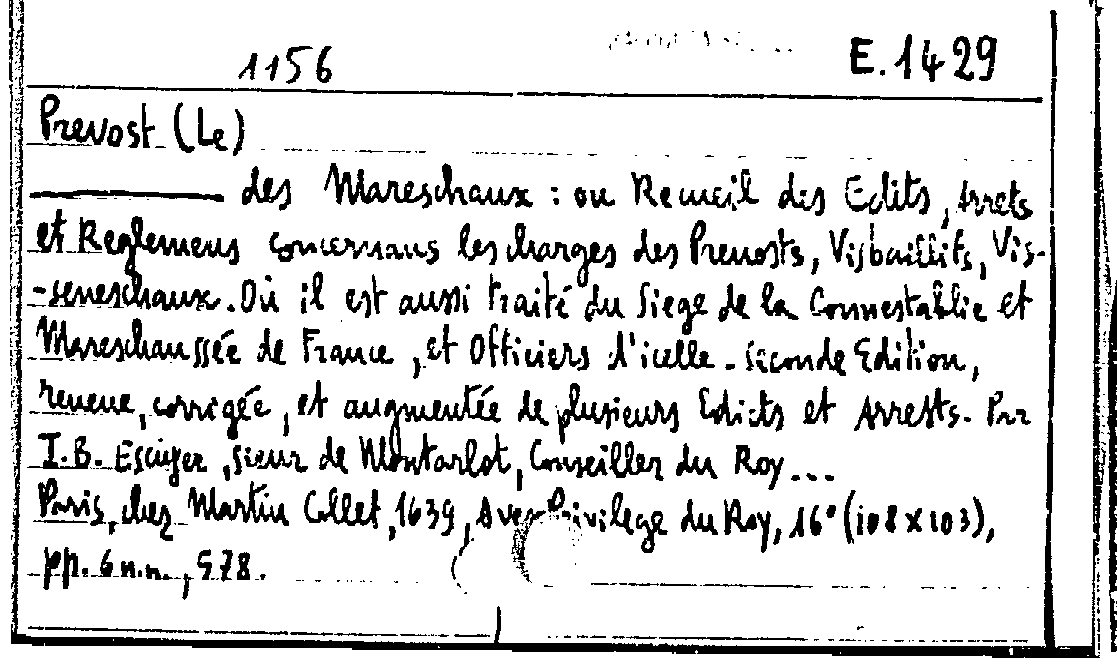 1156 E.1429
Prevost (Le)
des Mareschaux : ou Recueil des Edits, Arrets
et Reglemens concernans les charges des Prevosts, Visbaillifs, Vis-
-seneschaux. Où il est aussi traité du Siege de la Connestablie et
Mareschaussée de France, et Officiers d'icelle. Seconde Edition,
reveue, corrigée, et augmentée de plusieurs Edicts et Arrests. Par
I.B. Escuyer, sieur de Montarlot, Conseiller du Roy...
Paris, chez Martin Collet, 1639, Avec Privilege du Roy, 16° (108 x 103),
pp. 6 n.n., 578.